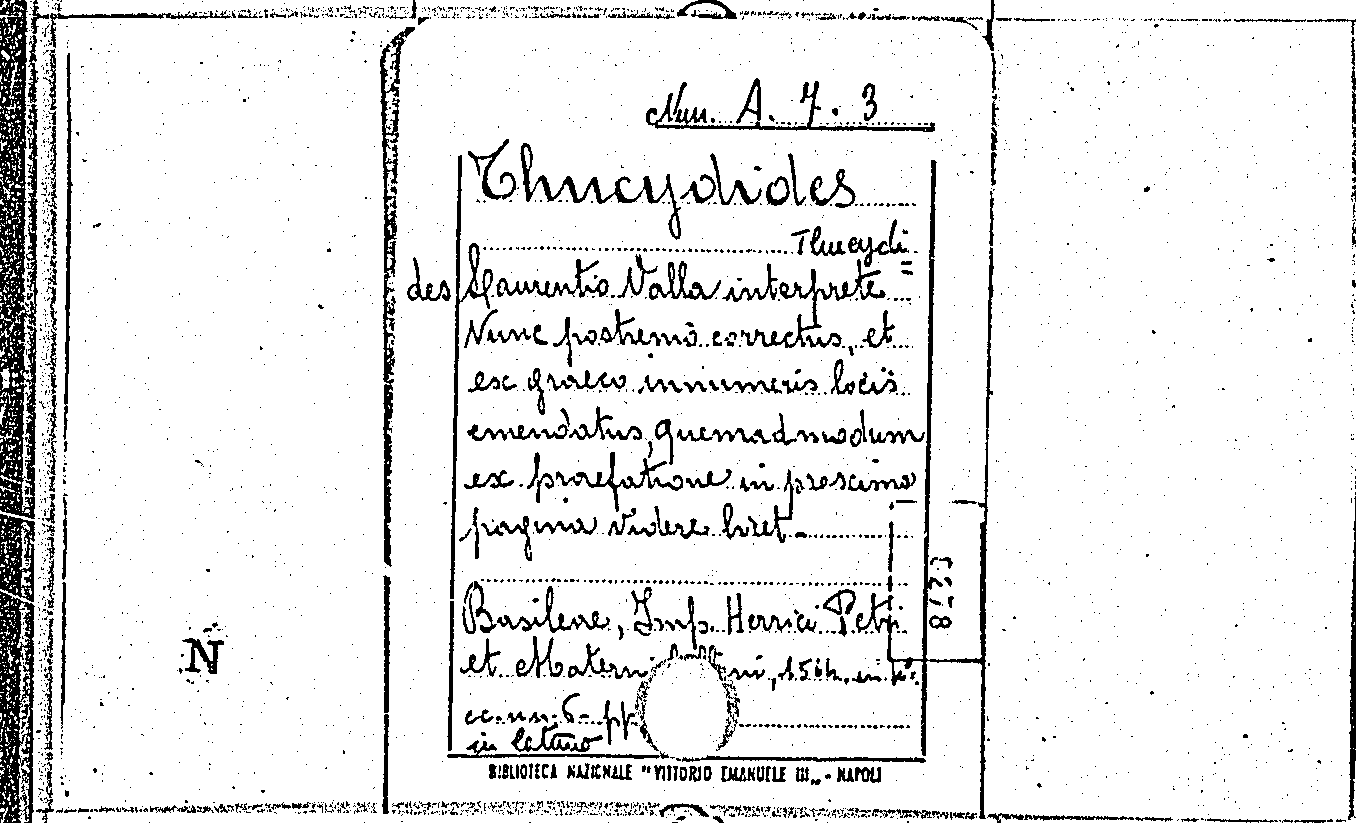 Nun. A. 7. 3
Thucydides
Thucydi=
des Laurentio Valla interprete
Nunc postremò correctus, et
ex graeco innumeris locis
emendatus, quemadmodum
ex praefatione in proxima
pagina videre licet -
Basileae, Imp. Henrici Petri
et Materni
cc. nn. 6 - pp
in latino
BIBLIOTECA NAZIONALE "VITTORIO EMANUELE III„ - NAPOLI
N
8220